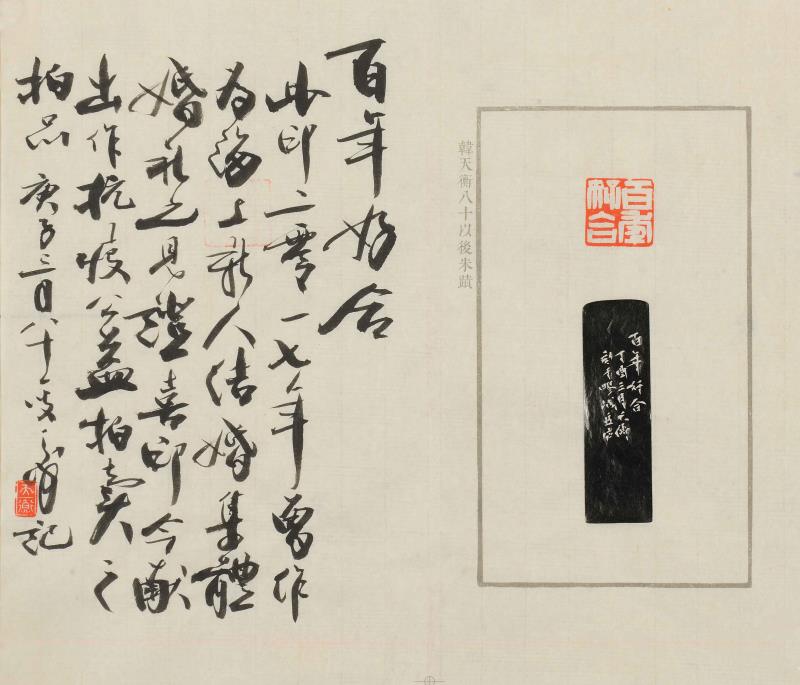 百年好合
百年好合
丁酉三月天衡
韓天衡八十以後朱蹟
百年好合
此印二零一七年曾作
為海上新人结婚集體
婚礼之見證喜印今献
出作抗疫公益拍賣之
拍品 庚子三月八十一叟天衡記
天衡